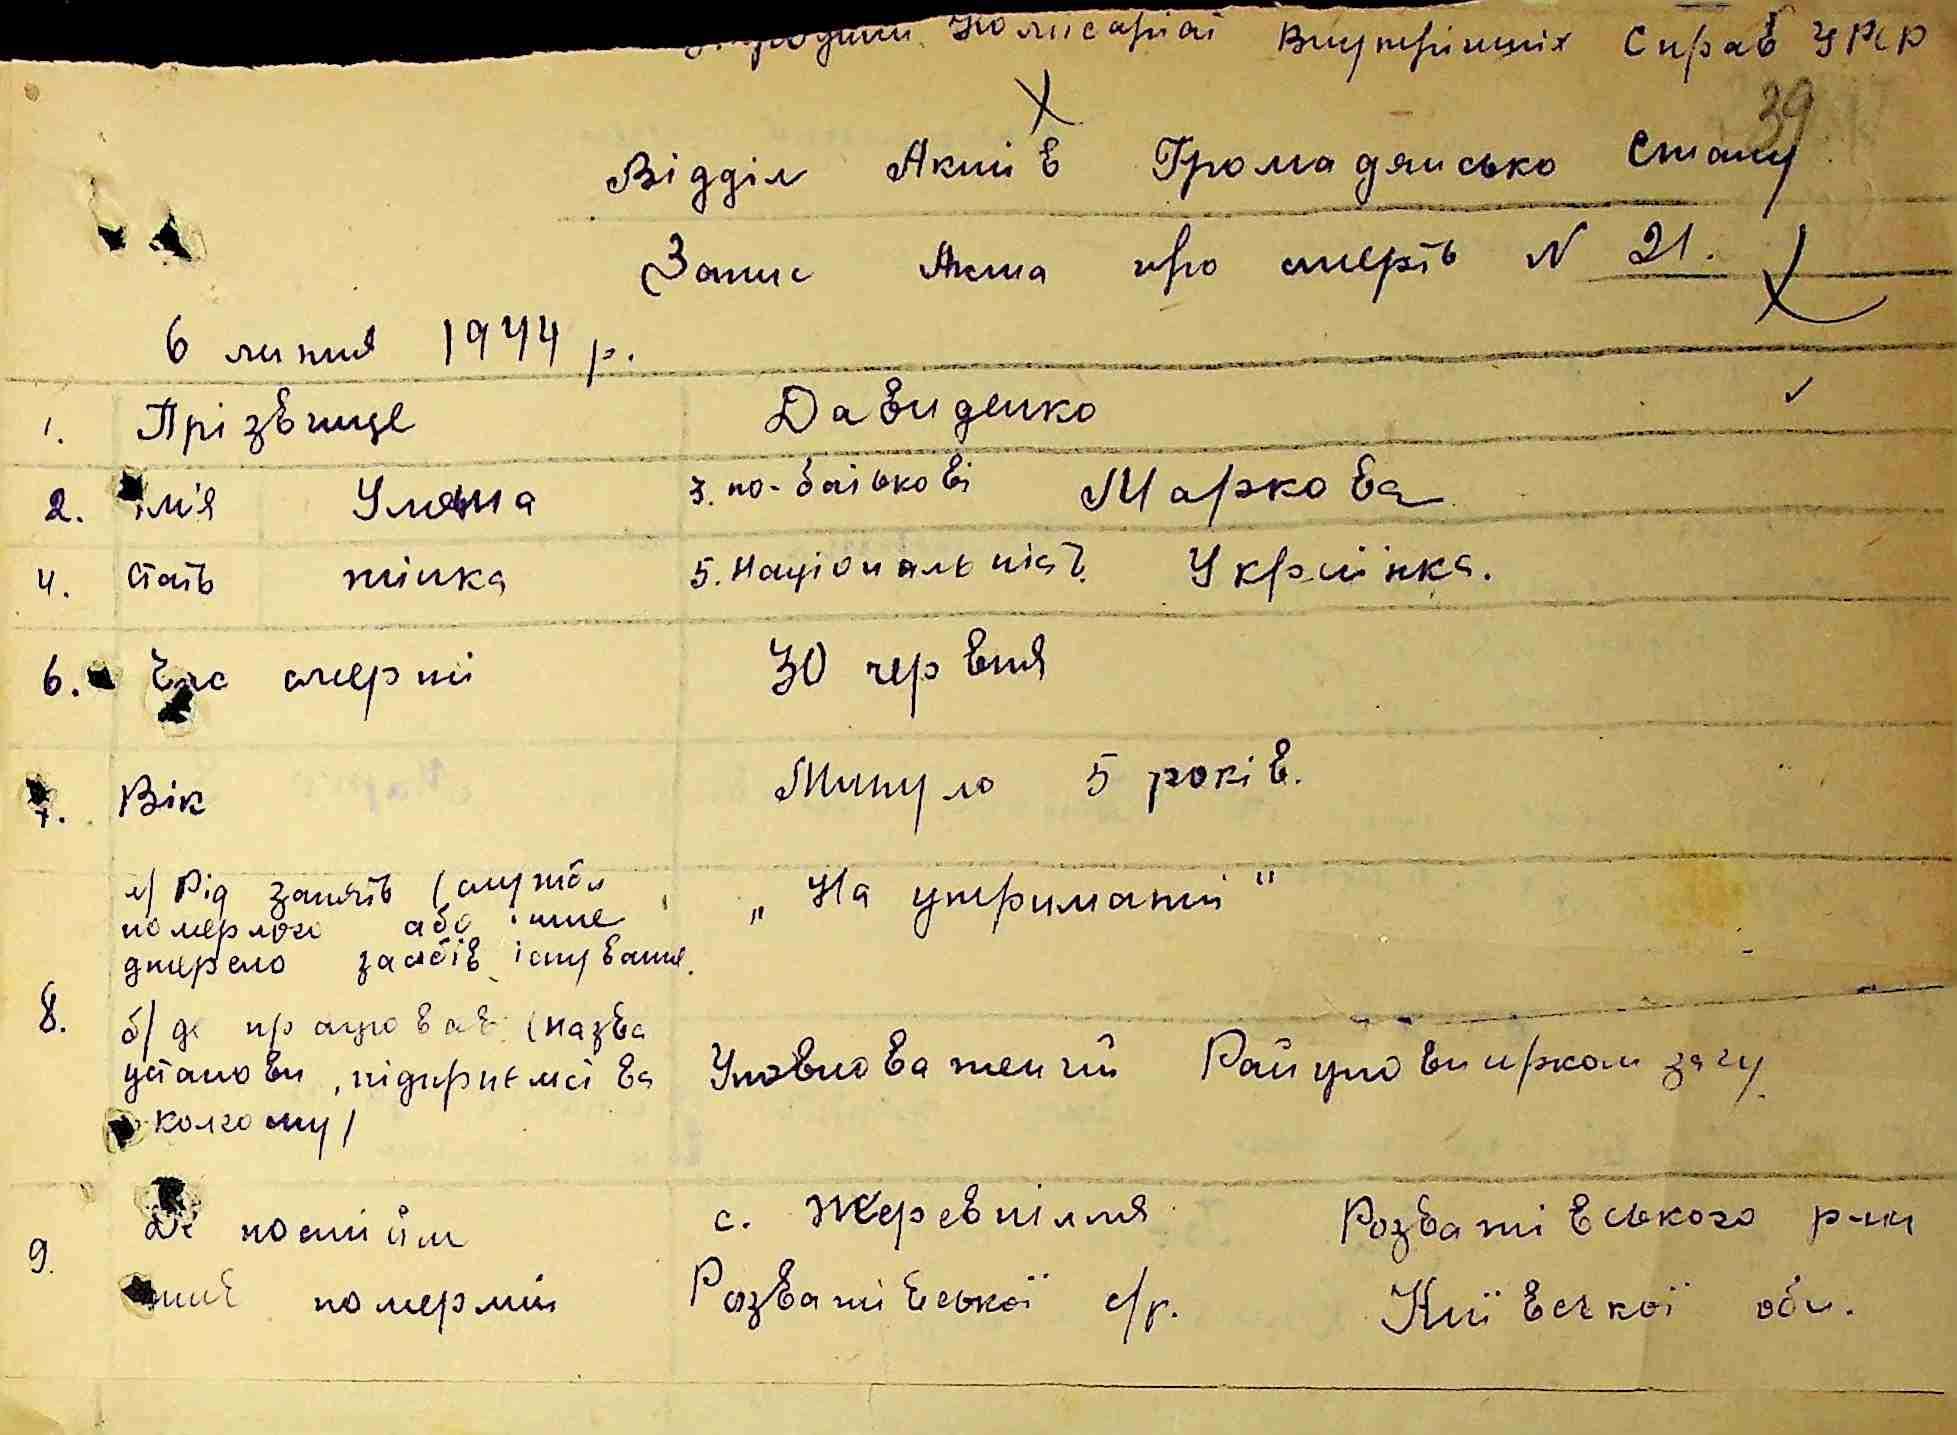 Народний Комісаріат Внутрішніх Справ УРСР
39
Відділ Актів Громадянсько Стану
Запис Акта про смерть N 21.
6 липня 1944 р.
1. Прізвище Давиденко
2. ім'я Уляна 3. по-батькові Маркова
4. стать жінка 5. Національність Українка.
6. Час смерті 30 червня
7. Вік Минуло 5 років.
а) Рід занять (служба
померлого або інше „На утриманні"
джерело засобів існування.
8. б) де працював (назва
установи, підприємства Уповноважений
колгоспу)
9. Де постійн с. Жеревпілля Розважівського р-ну
жив померлий Розважівської с/р. Київської обл.